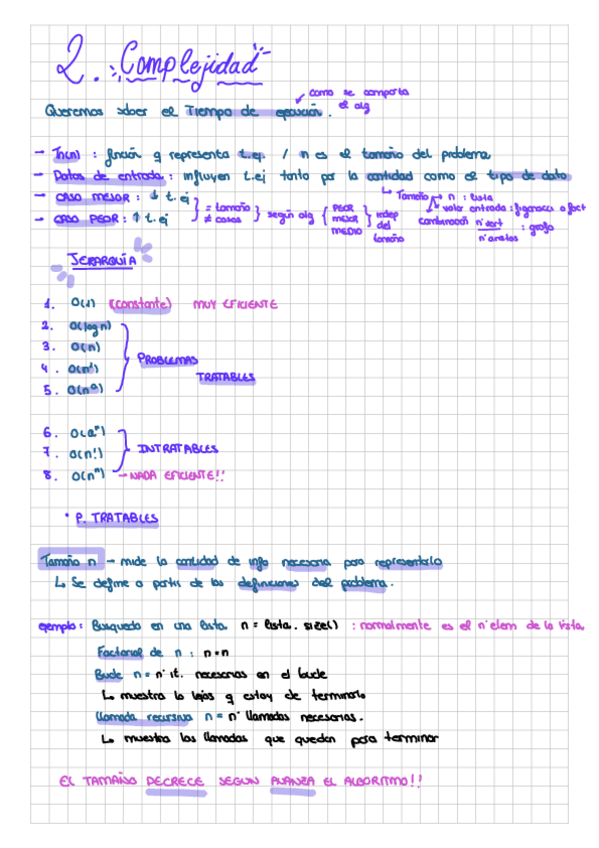 2. Complejidad
Queremos saber el Tiempo de ejecución. como se comporta
el alg
- Tn(n) : función q representa t.ej. / n es el tamaño del problema
- Datos de entrada : influyen t.ej tanto por la cantidad como el tipo de dato
- CASO MEJOR : ↓ t.ej
- CASO PEOR : ↑ t.ej
= tamaño
≠ casos
según alg
PEOR
MEJOR
MEDIO
indep
del
tamaño
↳ Tamaño n : lista
valor entrada : fibonacci o fact
combinación nº vert
nº aristas : grafo
JERARQUÍA
1. O(1) (constante) MUY EFICIENTE
2. O(log n)
3. O(n)
4. O(n¹)
5. O(nᵃ)
PROBLEMAS
TRATABLES
6. O(aⁿ)
7. O(n!)
8. O(nⁿ) → NADA EFICIENTE!!
INTRATABLES
• P. TRATABLES
Tamaño n → mide la cantidad de info necesaria para representarlo
↳ Se define a partir de las definiciones del problema.
ejemplo : Busqueda en una lista n = lista.size() : normalmente es el nº elem de la lista
Factorial de n : n=n
Bucle n = nº it. necesarias en el bucle
↳ muestra lo lejos q estoy de terminarlo
Llamada recursiva n = nº llamadas necesarias.
↳ muestra las llamadas que quedan para terminar
EL TAMAÑO DECRECE SEGUN AVANZA EL ALGORITMO!!